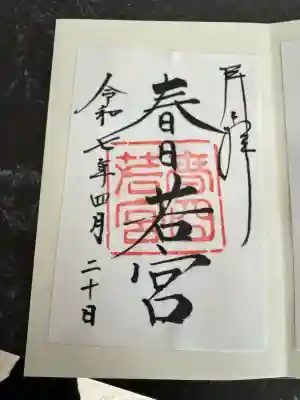 奉拝
春日若宮
春日若宮
令和七年四月二十日